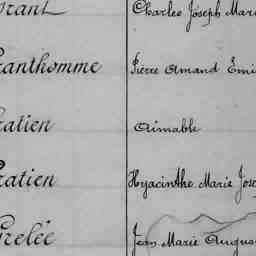 rant Charles Joseph Mari
ranthomme Pierre Amand Emi
ratien Aimable
ratien Hyacinthe Marie Jose
relée Jean Marie Augus